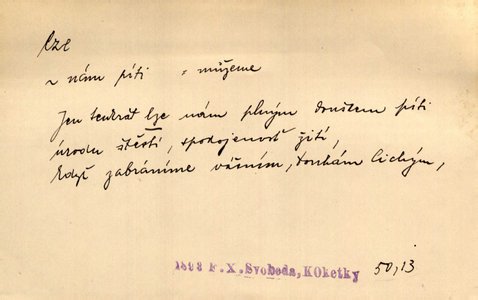 lze
~ nám píti = můžeme
Jen tenkrát lze nám plným douškem píti
úrodu štěstí, spokojenost žití,
když zabráníme vášním, touhám lichým,
1893 F.X.Svoboda, KOketky 50,13